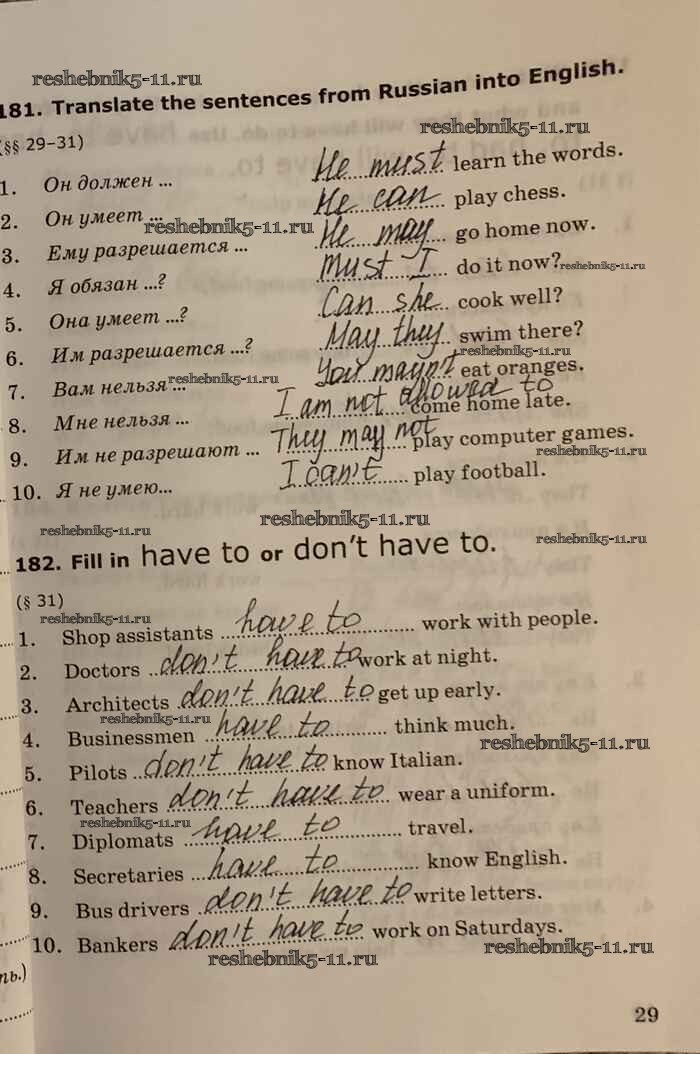 reshebnik5-11.ru
181. Translate the sentences from Russian into English.
reshebnik5-11.ru
(§§ 29–31)
1. Он должен ... He must learn the words.
2. Он умеет ... He can play chess.
reshebnik5-11.ru
3. Ему разрешается ... He may go home now.
4. Я обязан ...? Must I do it now?
reshebnik5-11.ru
5. Она умеет ...? Can she cook well?
6. Им разрешается ...? May they swim there?
reshebnik5-11.ru
7. Вам нельзя ... You mayn't eat oranges.
reshebnik5-11.ru
8. Мне нельзя ... I am not allowed to come home late.
9. Им не разрешают ... They may not play computer games.
reshebnik5-11.ru
10. Я не умею... I can't play football.
reshebnik5-11.ru
reshebnik5-11.ru
reshebnik5-11.ru
182. Fill in have to or don't have to.
(§ 31)
reshebnik5-11.ru
1. Shop assistants have to work with people.
2. Doctors don't have to work at night.
3. Architects don't have to get up early.
reshebnik5-11.ru
4. Businessmen have to think much.
reshebnik5-11.ru
5. Pilots don't have to know Italian.
6. Teachers don't have to wear a uniform.
reshebnik5-11.ru
7. Diplomats have to travel.
8. Secretaries have to know English.
9. Bus drivers don't have to write letters.
10. Bankers don't have to work on Saturdays.
reshebnik5-11.ru
reshebnik5-11.ru
ть.)
29